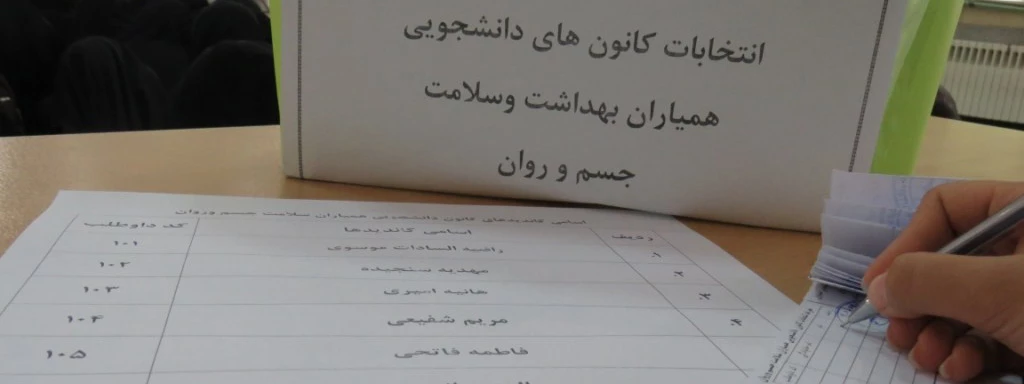 انتخابات کانون های دانشجویی
همیاران بهداشت وسلامت
جسم و روان
اسامی کاندیدهای کانون دانشجویی همیاران سلامت جسم وروان
ردیف اسامی کاندیدها کد داوطلب
۱. راضیه السادات موسوی ۱۰۱
۲. مهدیه سنجیده ۱۰۲
۳. هانیه امیری ۱۰۳
۴. مریم شفیعی ۱۰۴
فاطمه فاتحی ۱۰۵